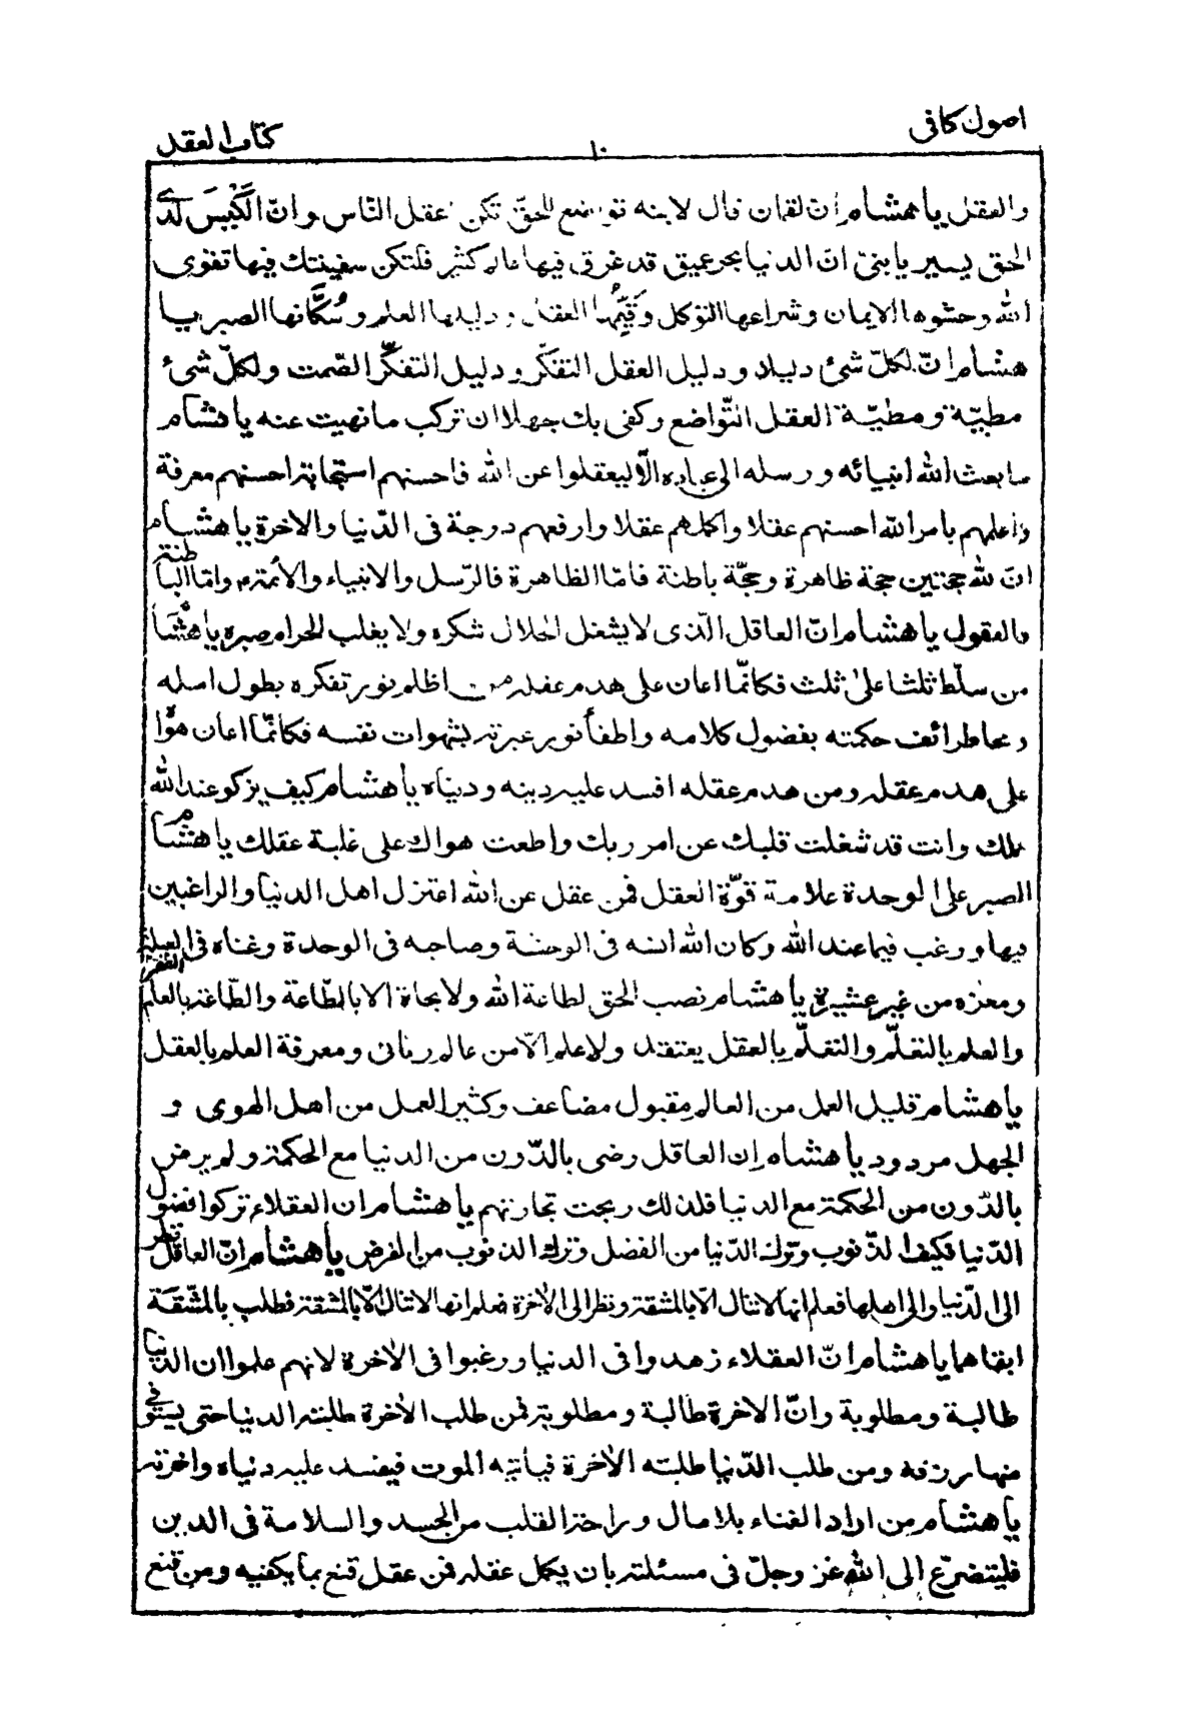 اصول كافى
١٠
كتاب العقل
والعقل يا هشام ان لقمان قال لابنه تواضع للحقّ تكن اعقل النّاس وانّ الكَيِّسَ لدى
الحق يسير يا بنىّ انّ الدنيا بحر عميق قد غرق فيها عالم كثير فلتكن سفينتك فيها تقوى
الله وحشوها الايمان وشراعها التوكل وقَيِّمُها العقل ودليلها العلم وسُكَّانها الصبر يا
هشام انّ لكلّ شئ دليلا ودليل العقل التفكّر ودليل التفكّر الصّمت ولكلّ شئ
مطيّة ومطيّة العقل التّواضع وكفى بك جهلا ان تركب ما نهيت عنه يا هشام
ما بعث الله انبيائه ورسله الى عباده الّا ليعقلوا عن الله فاحسنهم استجابة احسنهم معرفة
واعلمهم بامر الله احسنهم عقلا واكملهم عقلا وارفعهم درجة فى الدّنيا والاخرة يا هشام
انّ لله حجّتين حجة ظاهرة وحجّة باطنة فامّا الظاهرة فالرّسل والانبياء والأئمة وامّا الباطنة
فالعقول يا هشام انّ العاقل الّذى لا يشغل الحلال شكره ولا يغلب الحرام صبره يا هشام
من سلّط ثلثا على ثلث فكانّما اعان على هدم عقله من اظلم نور تفكره بطول امله
ومحا طرائف حكمته بفضول كلامه واطفأ نور عبرته بشهوات نفسه فكانّما اعان هواه
على هدم عقله ومن هدم عقله افسد عليه دينه ودنياه يا هشام كيف يزكو عند الله
عملك وانت قد شغلت قلبك عن امر ربك واطعت هواك على غلبة عقلك يا هشام
الصبر على الوحدة علامة قوّة العقل فمن عقل عن الله اعتزل اهل الدنيا والراغبين
فيها ورغب فيما عند الله وكان الله انسه فى الوحشة وصاحبه فى الوحدة وغناه فى العيلة
ومعزه من غير عشيرة يا هشام نصب الحق لطاعة الله ولا نجاة الا بالطّاعة والطّاعة بالعلم
والعلم بالتعلّم والتعلّم بالعقل يعتقد ولا علم الّا من عالم ربانى ومعرفة العلم بالعقل
يا هشام قليل العمل من العالم مقبول مضاعف وكثير العمل من اهل الهوى و
الجهل مردود يا هشام ان العاقل رضى بالدّون من الدنيا مع الحكمة ولم يرض
بالدّون من الحكمة مع الدنيا فلذلك ربحت تجارتهم يا هشام ان العقلاء تركوا فضول
الدّنيا فكيف الذّنوب وترك الدّنيا من الفضل وترك الذنوب من الفرض يا هشام انّ العاقل نظر
الى الدّنيا والى اهلها فعلم انها لا تنال الّا بالمشقة ونظر الى الاخرة فعلم انها لا تنال الّا بالمشقة فطلب بالمشّقة
ابقاهما يا هشام انّ العقلاء زهدوا فى الدنيا ورغبوا فى الاخرة لانهم علموا ان الدنيا
طالبة ومطلوبة وانّ الاخرة طالبة ومطلوبة فمن طلب الاخرة طلبته الدنيا حتى يستوفى
منها رزقه ومن طلب الدّنيا طلبته الاخرة فياتيه الموت فيفسد عليه دنياه واخرته
يا هشام من اراد الغناء بلا مال وراحة القلب من الجسد والسلامة فى الدين
فليتضرّع الى الله عز وجلّ فى مسئلته بان يكمل عقله فمن عقل قنع بما يكفيه ومن قنع